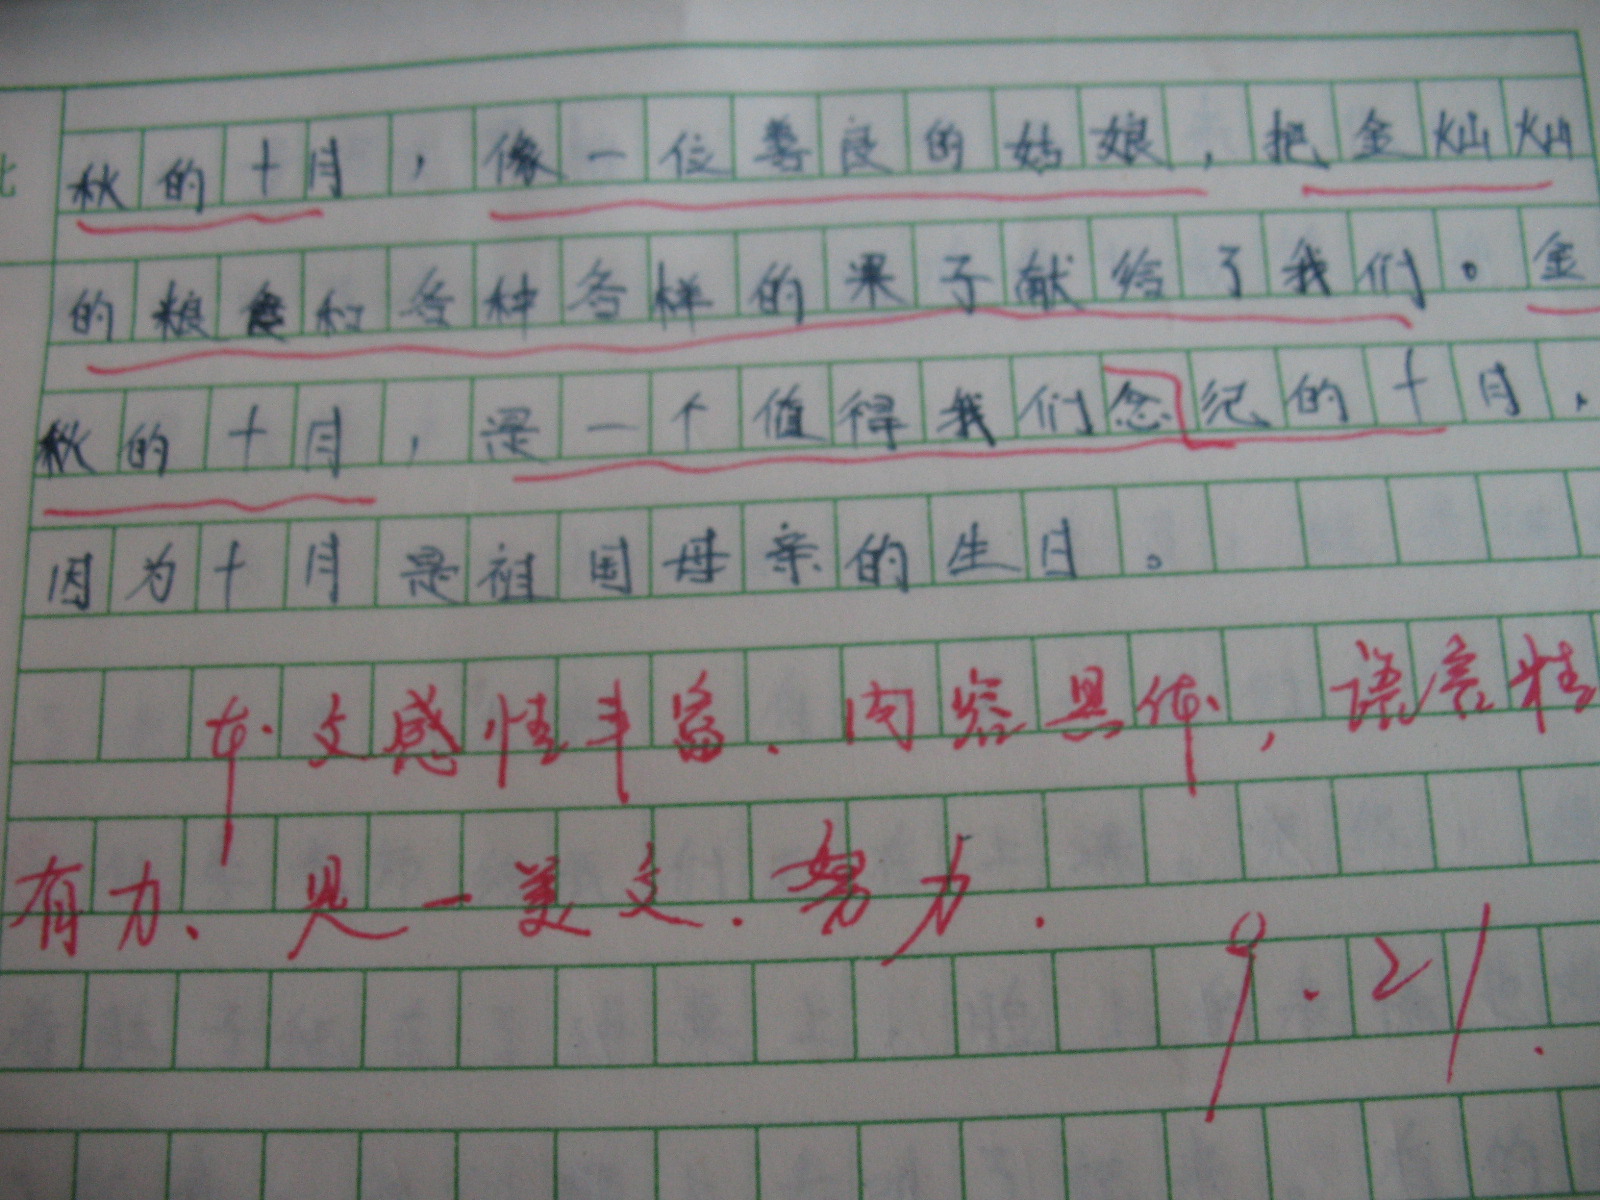 秋的十月，像一位善良的姑娘，把金灿灿
的粮食和各种各样的果子献给了我们。金
秋的十月，是一个值得我们念纪的十月，
因为十月是祖国母亲的生日。
本文感情丰富．内容具体，语言精
有力、是一美文．努力．
9.21.